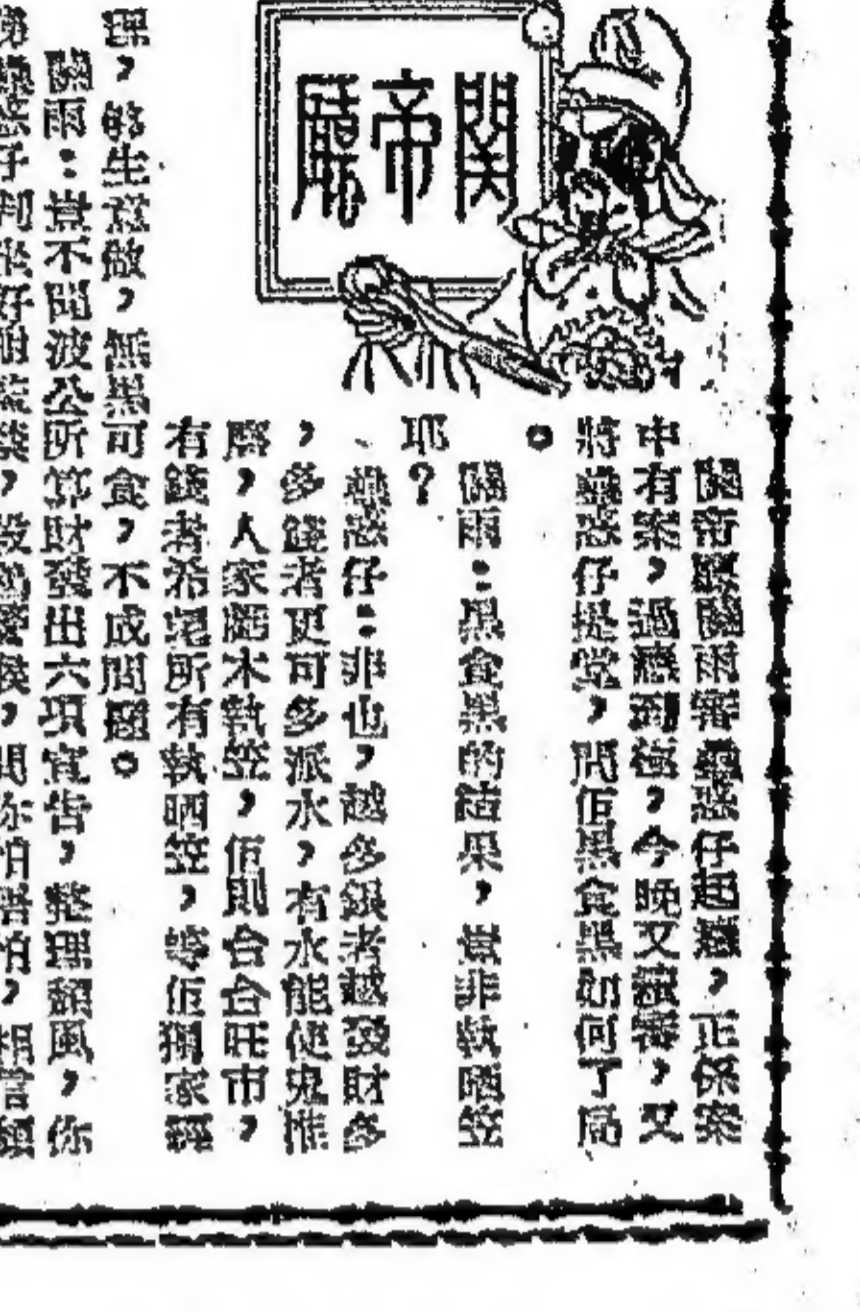 関帝廳
關帝廳關雨審蠱惑仔起題,正係案
中有案,過癮到極,今晚又續審,又
將蠱惑仔提堂,問佢黑食黑如何了局
。
關雨:黑食黑的結果,豈非執晒笠
耶?
蠱惑仔:非也,越多銀者越發財多
,多錢者更可多派水,有水能使鬼推
磨,人家晒木執笠,佢則合合旺市,
有錢者希望所有執晒笠,等佢獨家經
理,的生意做,無黑可食,不成問題。
關雨:豈不聞波公所算財發出六項宣告,整理頹風,你